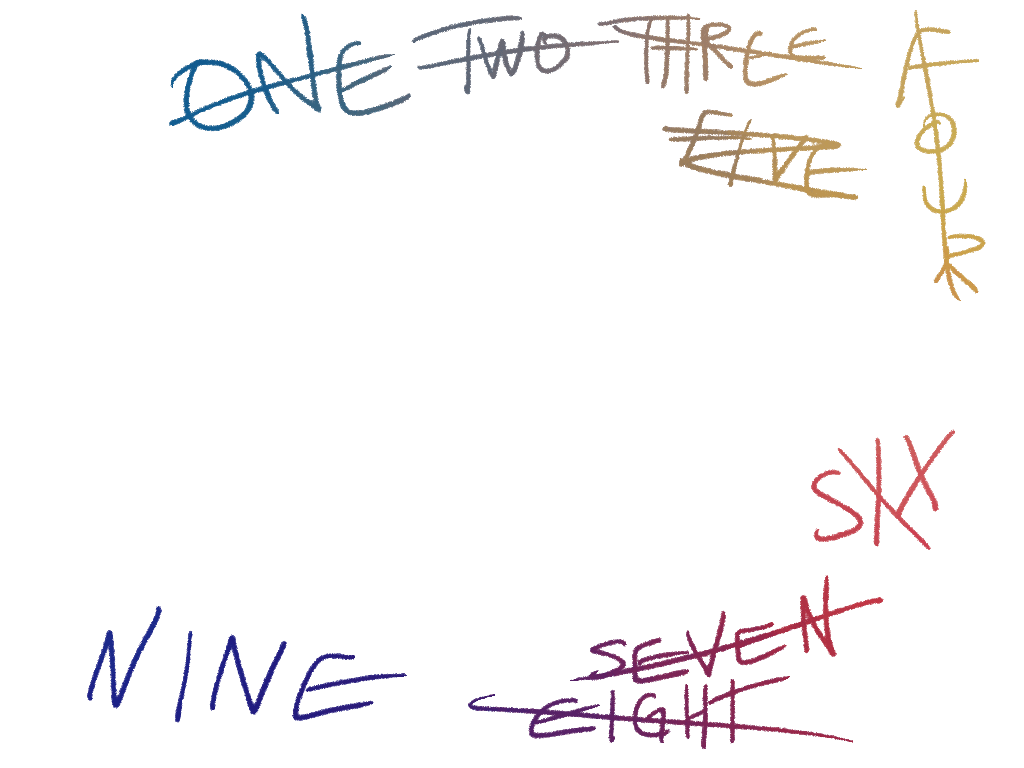 ONE TWO THREE FOUR
FIVE
SIX
SEVEN
EIGHT
NINE